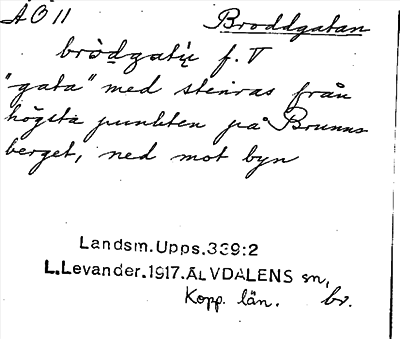 ÄÖ 11 Broddgatan
bròdgatı̨c f. V
"gata" med stenras från
högsta punkten på Brunns
berget, ned mot byn
Landsm.Upps.339:2
L.Levander.1917.ÄLVDALENS sn,
Kopp. län. br.